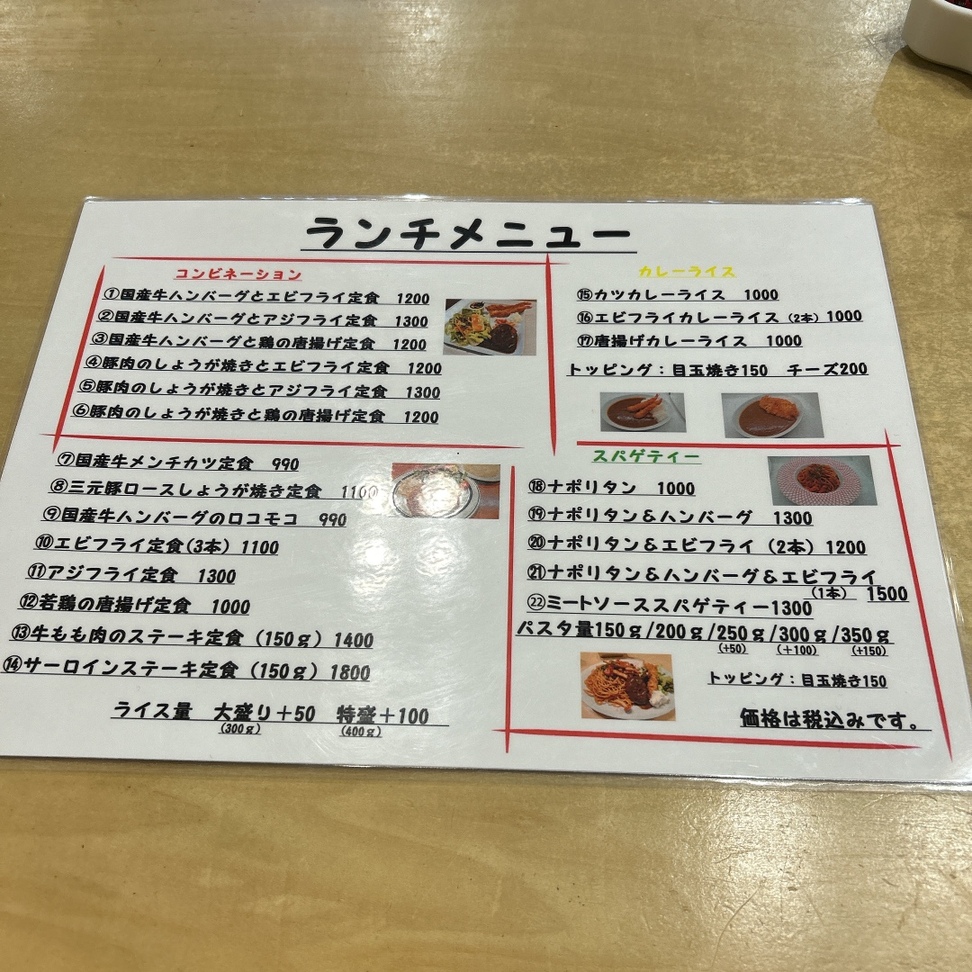 ランチメニュー
コンビネーション
①国産牛ハンバーグとエビフライ定食 1200
②国産牛ハンバーグとアジフライ定食 1300
③国産牛ハンバーグと鶏の唐揚げ定食 1200
④豚肉のしょうが焼きとエビフライ定食 1200
⑤豚肉のしょうが焼きとアジフライ定食 1300
⑥豚肉のしょうが焼きと鶏の唐揚げ定食 1200
⑦国産牛メンチカツ定食 990
⑧三元豚ロースしょうが焼き定食 1100
⑨国産牛ハンバーグのロコモコ 990
⑩エビフライ定食(3本) 1100
⑪アジフライ定食 1300
⑫若鶏の唐揚げ定食 1000
⑬牛もも肉のステーキ定食(150g) 1400
⑭サーロインステーキ定食(150g) 1800
ライス量 大盛り+50 特盛+100
(300g) (400g)
カレーライス
⑮カツカレーライス 1000
⑯エビフライカレーライス(2本) 1000
⑰唐揚げカレーライス 1000
トッピング:目玉焼き150 チーズ200
スパゲティー
⑱ナポリタン 1000
⑲ナポリタン&ハンバーグ 1300
⑳ナポリタン&エビフライ(2本) 1200
㉑ナポリタン&ハンバーグ&エビフライ
(1本) 1500
㉒ミートソーススパゲティー1300
パスタ量150g/200g/250g/300g/350g
(+50) (+100) (+150)
トッピング:目玉焼き150
価格は税込みです。